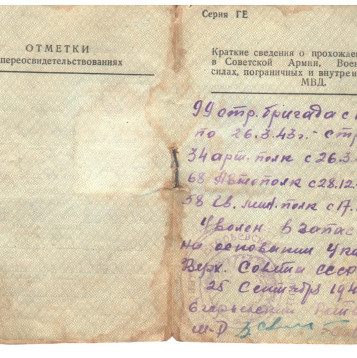 ОТМЕТКИ
переосвидетельствованиях
Серия ГЕ
Краткие сведения о прохожден
в Советской Армии, Воен
силах, пограничных и внутрен
МВД.
99 отр. бригада с
по 26.3.43г. - стр
34 арт. полк с 26.3
68 Автополк с 28.12.
58 св. полк с 17.
Уволен в запас
на основании Ука
Верх. Совета СССР
25 Сентября 194